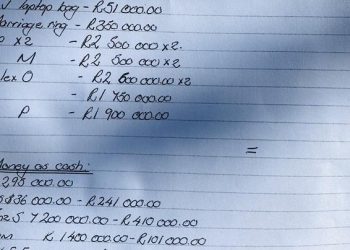 laptop bag - R51 000.00
Marriage ring - R350 000.00
x2 - R2 500 000 x2.
M - R2 500 000 x2
lex O - R2 600 000.00 x2
- R1 750 000.00
P - R1 900 000.00
=
Money as cash:
295 000.00
$36 000.00 - R241 000.00
7 200 000.00 - R410 000.00
R 1 400 000.00 - R101 000.00